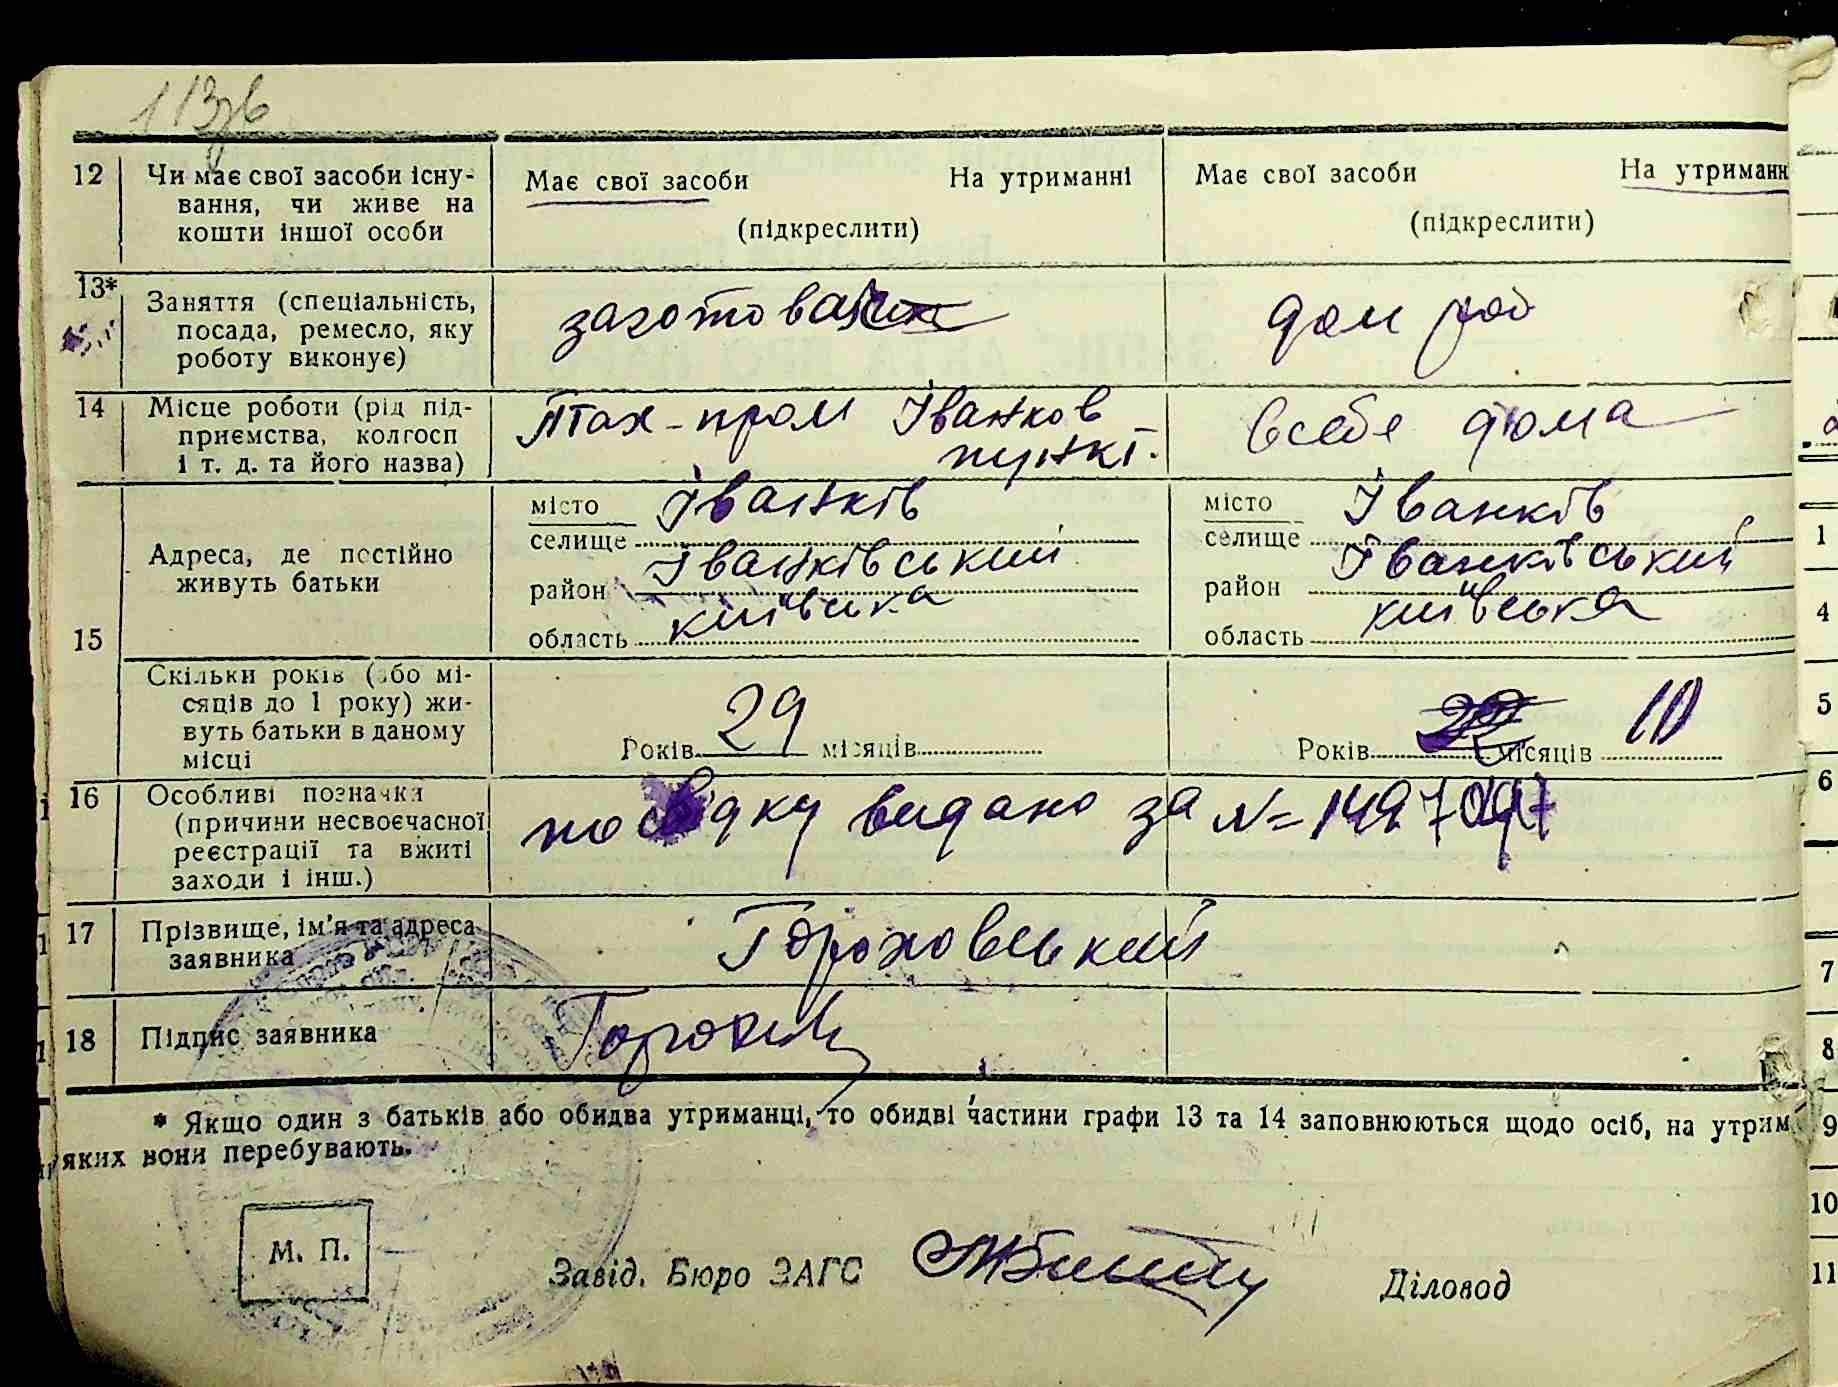 113зв
12 Чи має свої засоби існу-
вання, чи живе на
кошти іншої особи
Має свої засоби На утриманні
(підкреслити)
Має свої засоби На утриманн
(підкреслити)
13* Заняття (спеціальність,
посада, ремесло, яку
роботу виконує)
дом
14 Місце роботи (рід під-
приємства, колгосп
і т. д. та його назва)
Птах-пром Іванков
пункт.
в себе дома
15 Адреса, де постійно
живуть батьки
місто Іванків
селище
район Іванківський
область київська
місто Іванків
селище
район Іванківський
область київська
Скільки років (або мі-
сяців до 1 року) жи-
вуть батьки в даному
місці
Років 29 місяців
Років місяців 10
16 Особливі позначки
(причини несвоєчасної
реєстрації та вжиті
заходи і інш.)
посвідку видано за №
17 Прізвище, ім'я та адреса
заявника
Гороховський
18 Підпис заявника
* Якщо один з батьків або обидва утриманці, то обидві частини графи 13 та 14 заповнюються щодо осіб, на утрим
яких вони перебувають.
М. П.
Завід. Бюро ЗАГС
Діловод
1
4
5
6
7
8
9
10
11